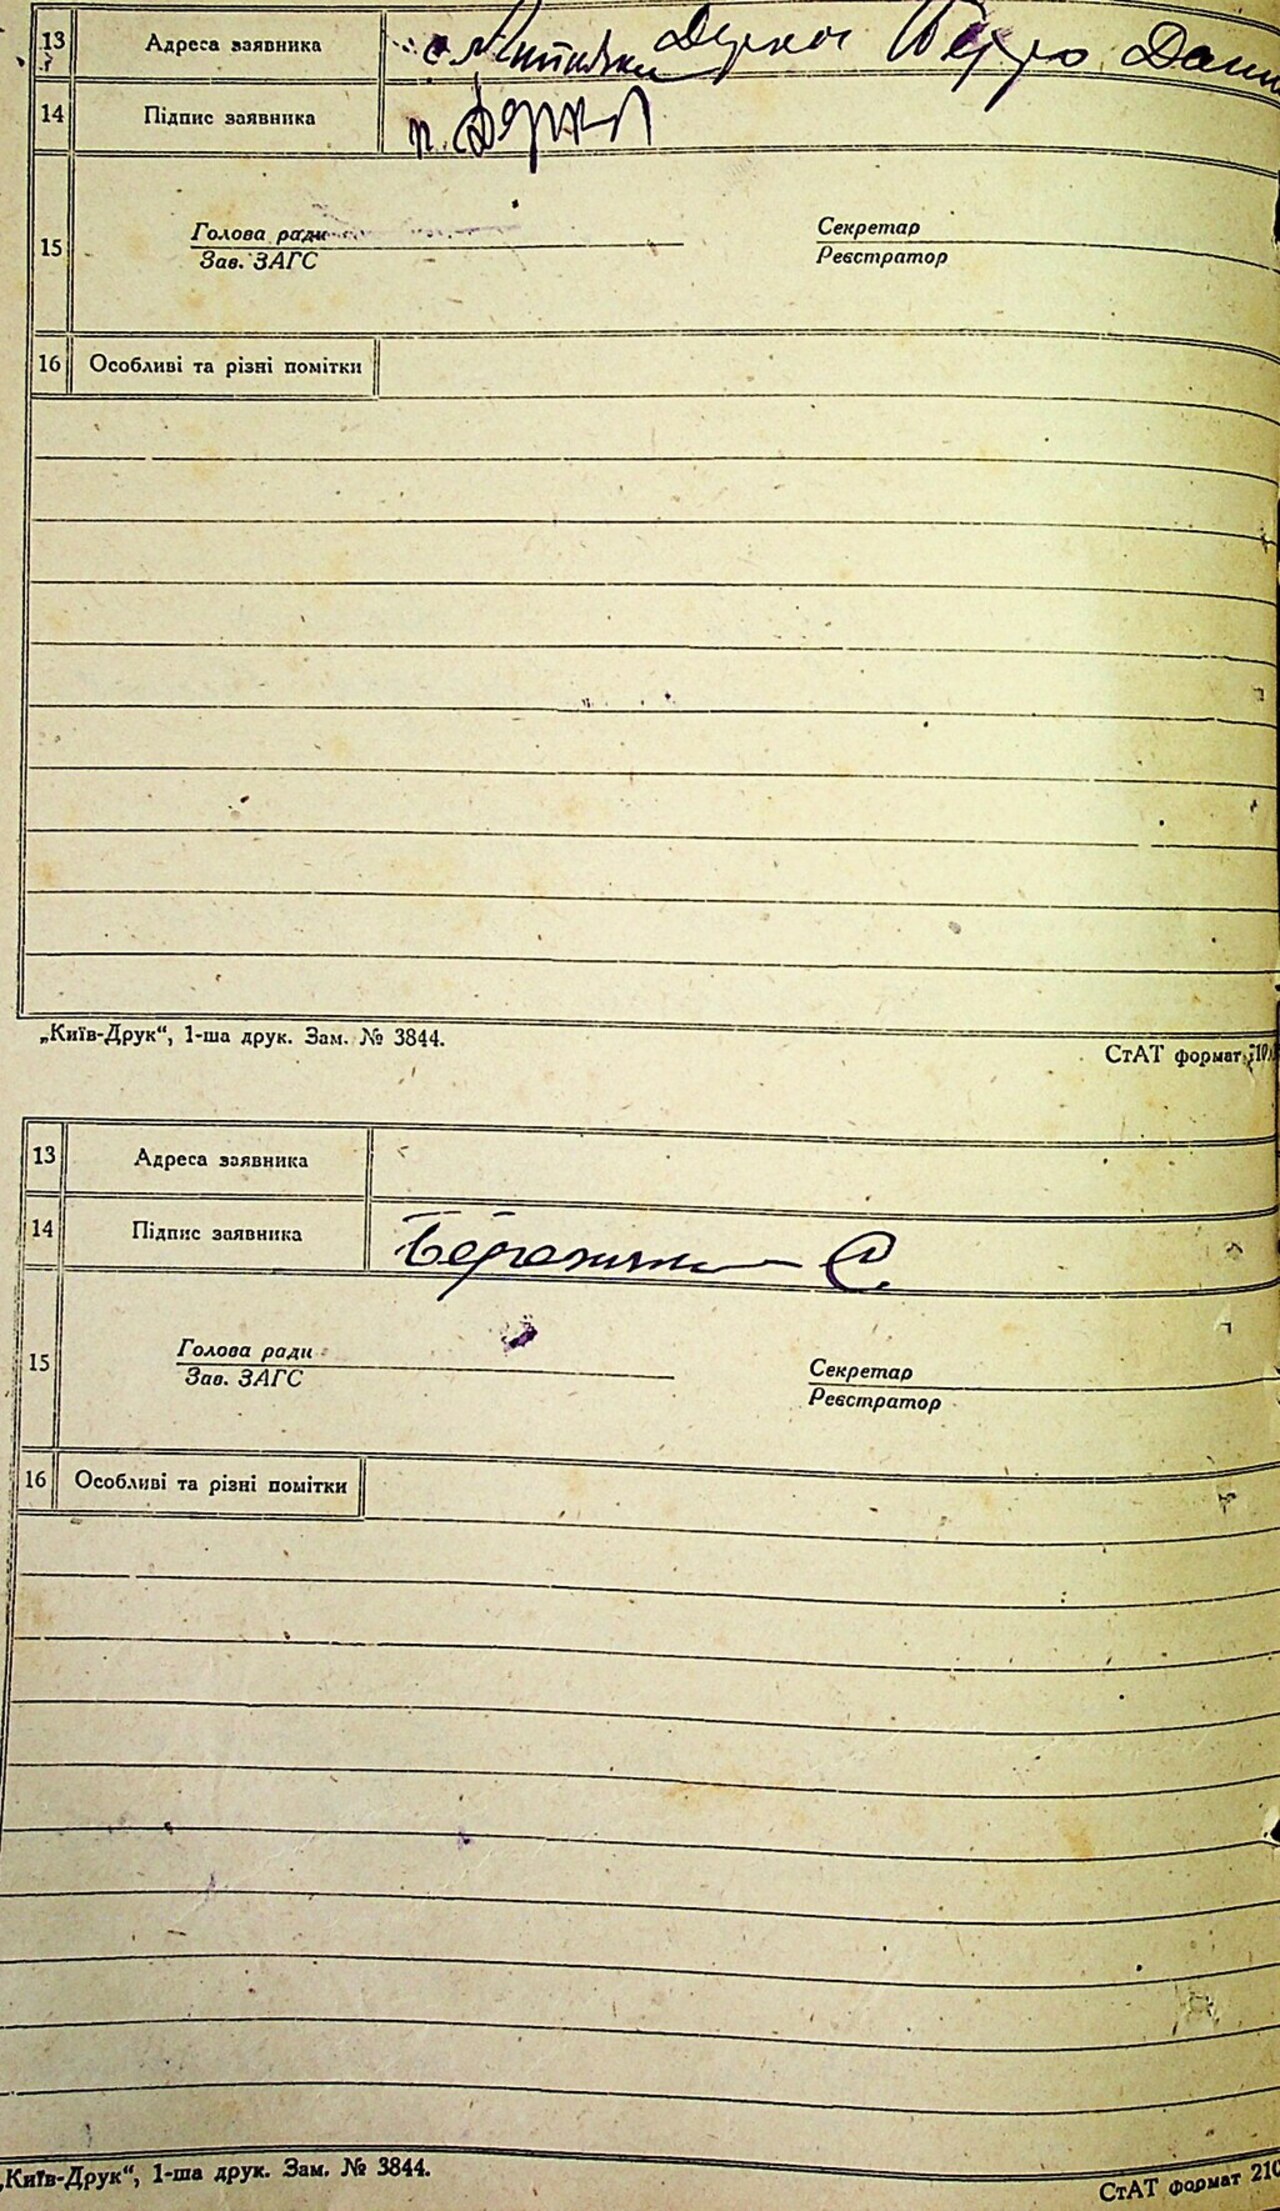 13 Адреса заявника с. Деркач Петро Дани
14 Підпис заявника п. Деркач
15 Голова ради Секретар
Зав. ЗАГС Реєстратор
16 Особливі та різні помітки
„Київ-Друк“, 1-ша друк. Зам. № 3844.
СтАТ формат 210
13 Адреса заявника
14 Підпис заявника С.
15 Голова ради Секретар
Зав. ЗАГС Реєстратор
16 Особливі та різні помітки
„Київ-Друк“, 1-ша друк. Зам. № 3844.
СтАТ формат 210